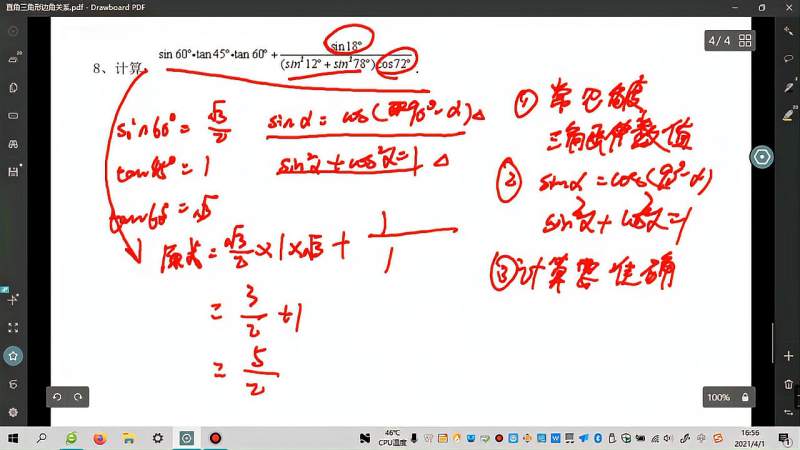 直角三角形边角关系.pdf - Drawboard PDF
4 / 4
8、计算: sin 60°•tan45°•tan 60° + sin18° / (sin²12° + sin²78°)cos72°.
sin60° = √3/2
sinα = cos(90°-α)
tan45° = 1
sin²α + cos²α = 1
tan60° = √3
原式 = √3/2 × 1 × √3 + 1/1
= 3/2 + 1
= 5/2
① 常见角度
三角函数值
② sinα = cos(90°-α)
sin²α + cos²α = 1
③ 计算要准确
100%
46℃
CPU温度
中
16:56
2021/4/1